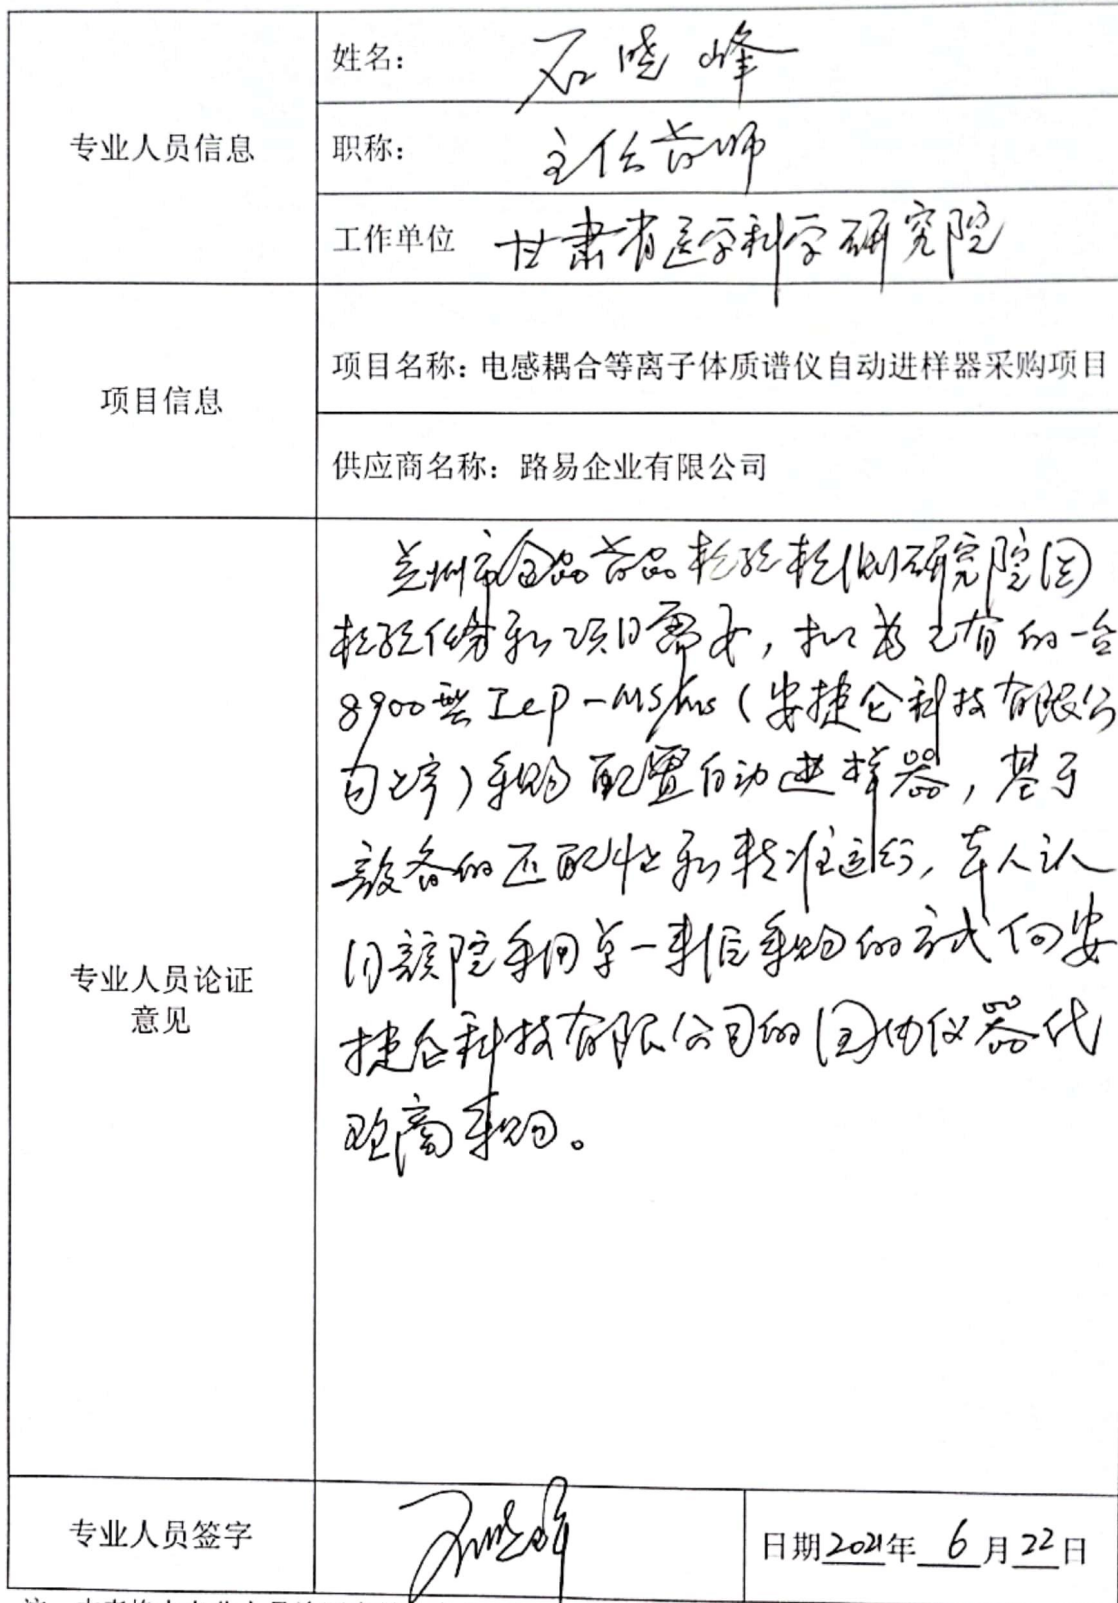 专业人员信息
姓名：石晓峰
职称：主任药师
工作单位 甘肃省医学科学研究院
项目信息
项目名称：电感耦合等离子体质谱仪自动进样器采购项目
供应商名称：路易企业有限公司
专业人员论证
意见
兰州市食品药品检验检测研究院因
检验任务和项目需要，拟为已有的一台
8900型ICP-MS/MS（安捷伦科技有限公
司生产）采购配置自动进样器，基于
设备的匹配性和精准运行，本人认
同该院采用单一来源采购的方式向安
捷伦科技有限公司的国内仪器代
理商采购。
专业人员签字
石晓峰
日期2021年6月22日